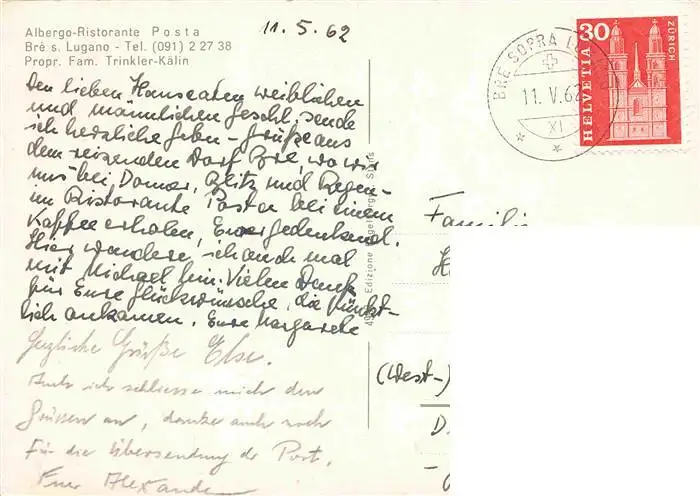 Albergo-Ristorante Posta
Brè s. Lugano - Tel. (091) 2 27 38
Propr. Fam. Trinkler-Kälin
11.5.62
Den lieben Hanseaten weiblichen
und männlichen Geschl. sende
ich herzliche Geburts-Grüße aus
dem reizenden Dorf Bré, wo wir
uns bei Donner, Blitz und Regen
im Ristorante Posta bei einem
Kaffee erholen, Euer gedenkend.
Hier wandere ich auch mal
mit Michael hin. Vielen Dank
für Eure Glückwünsche, die pünkt-
lich ankamen. Eure Margarete
Herzliche Grüße Else.
Auch ich schliesse mich den
Grüssen an, danke auch noch
für die Übersendung der Post.
Euer Alexander
Edizione
BRE SOPRA
11. V. 62
XI
30
HELVETIA
ZÜRICH
Familie
H
(West-)
D